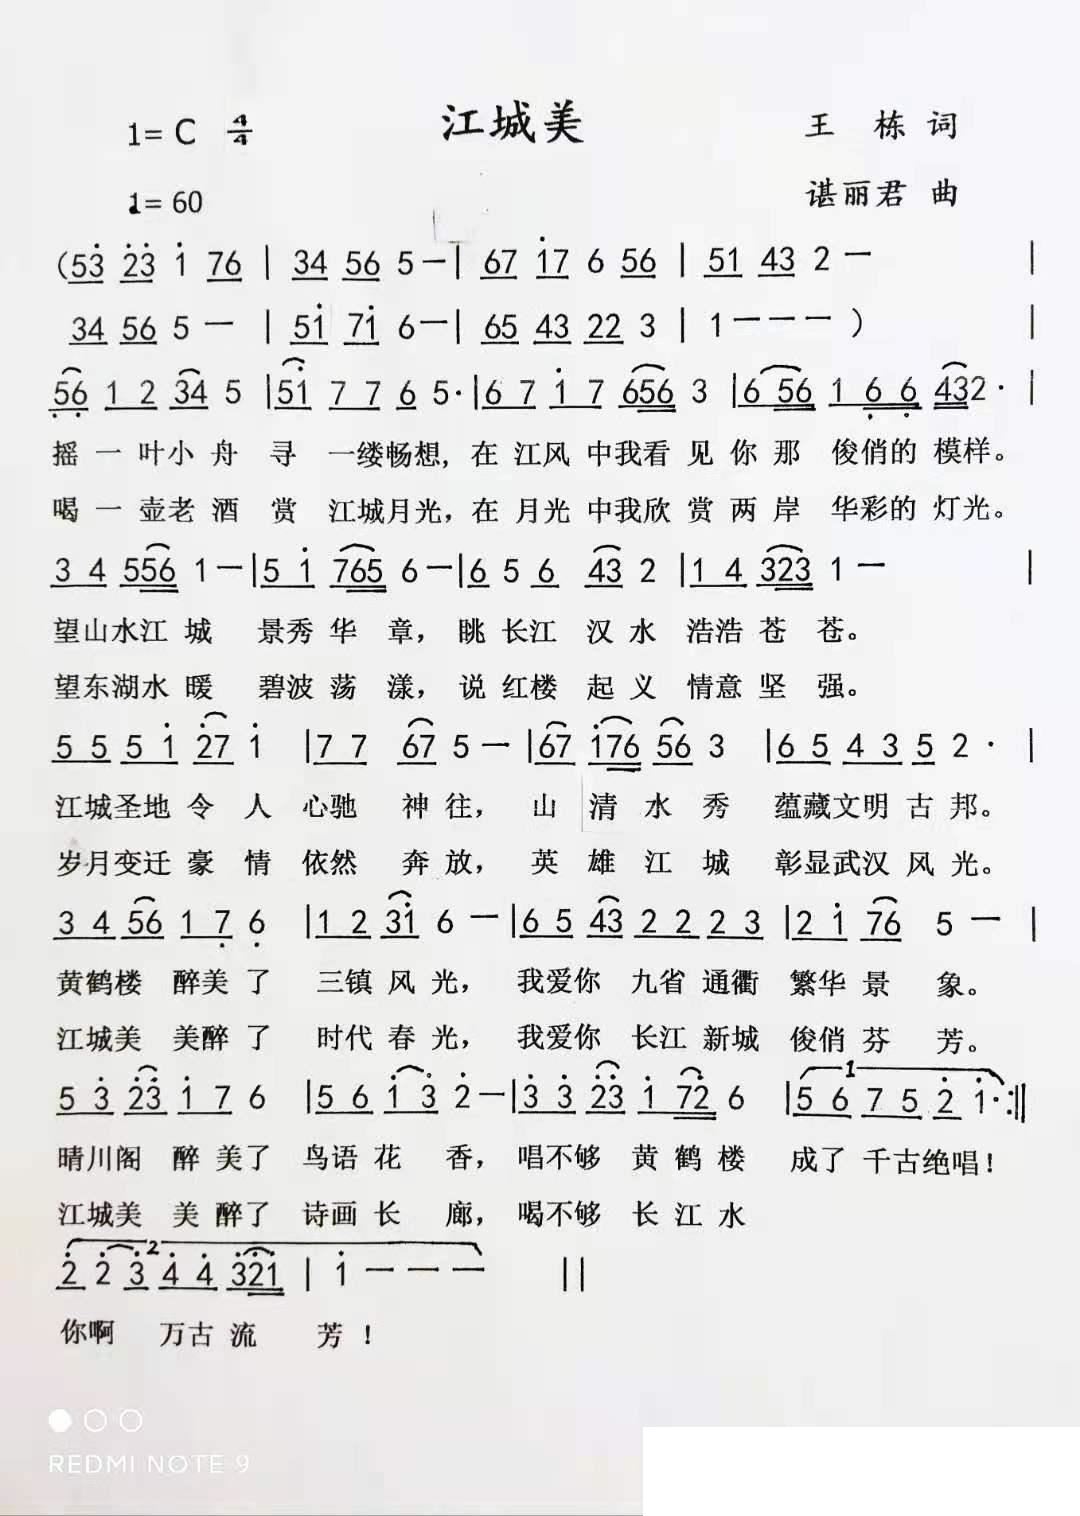 江城美
1= C 4/4 王 栋 词
1= 60 谌丽君 曲
(53 23 1 76 | 34 56 5 — | 67 17 6 56 | 51 43 2 — |
34 56 5 — | 51 71 6 — | 65 43 22 3 | 1 — — — ) |
56 1 2 34 5 | 51 7 7 6 5· | 6 7 1 7 656 3 | 6 56 1 6 6 432· |
摇 一 叶小 舟 寻 一缕畅想, 在 江风 中我看 见 你 那 俊俏的 模样。
喝 一 壶老 酒 赏 江城月光, 在 月光 中我欣 赏 两 岸 华彩的 灯光。
3 4 556 1 — | 5 1 765 6 — | 6 5 6 43 2 | 1 4 323 1 — |
望山水江 城 景秀 华 章, 眺 长江 汉 水 浩浩 苍 苍。
望东湖水 暖 碧波 荡 漾, 说 红楼 起 义 情意 坚 强。
5 5 5 1 27 1 | 7 7 67 5 — | 67 176 56 3 | 6 5 4 3 5 2 · |
江城圣地 令 人 心驰 神 往, 山 清 水 秀 蕴藏文明 古 邦。
岁月变迁 豪 情 依然 奔 放, 英 雄 江 城 彰显武汉 风 光。
3 4 56 1 7 6 | 1 2 31 6 — | 6 5 43 2 2 2 3 | 2 1 76 5 — |
黄鹤楼 醉美 了 三镇 风 光, 我爱你 九省 通衢 繁华 景 象。
江城美 美醉 了 时代 春 光, 我爱你 长江 新城 俊俏 芬 芳。
5 3 23 1 7 6 | 5 6 1 3 2 — | 3 3 23 1 72 6 | 1 5 6 7 5 2 1· :||
晴川阁 醉 美了 鸟语 花 香, 唱不够 黄 鹤 楼 成了 千古绝唱!
江城美 美 醉了 诗画 长 廊, 喝不够 长 江 水
2 2 2 3 4 4 321 | 1 — — — ||
你啊 万古 流 芳!
REDMI NOTE 9